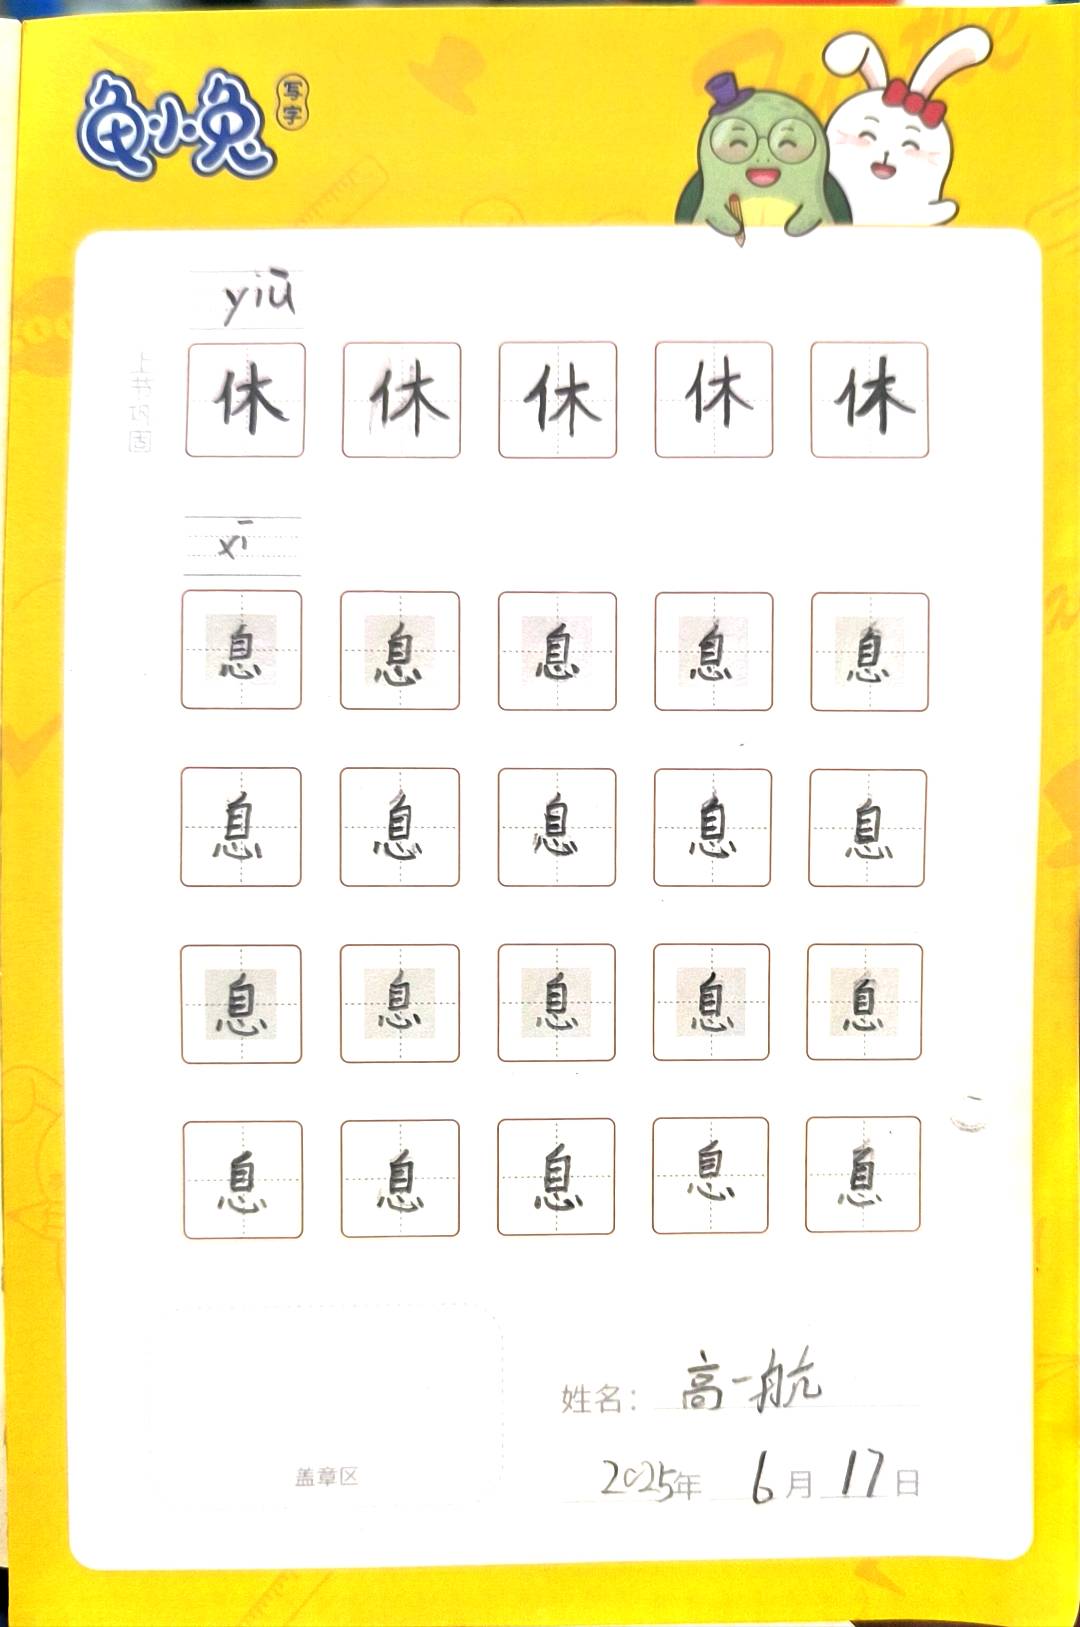 龟小兔 写字
yiū
上节巩固
休 休 休 休 休
xī
息 息 息 息 息
息 息 息 息 息
息 息 息 息 息
息 息 息 息 息
姓名: 高一航
盖章区
2025年 6月17日